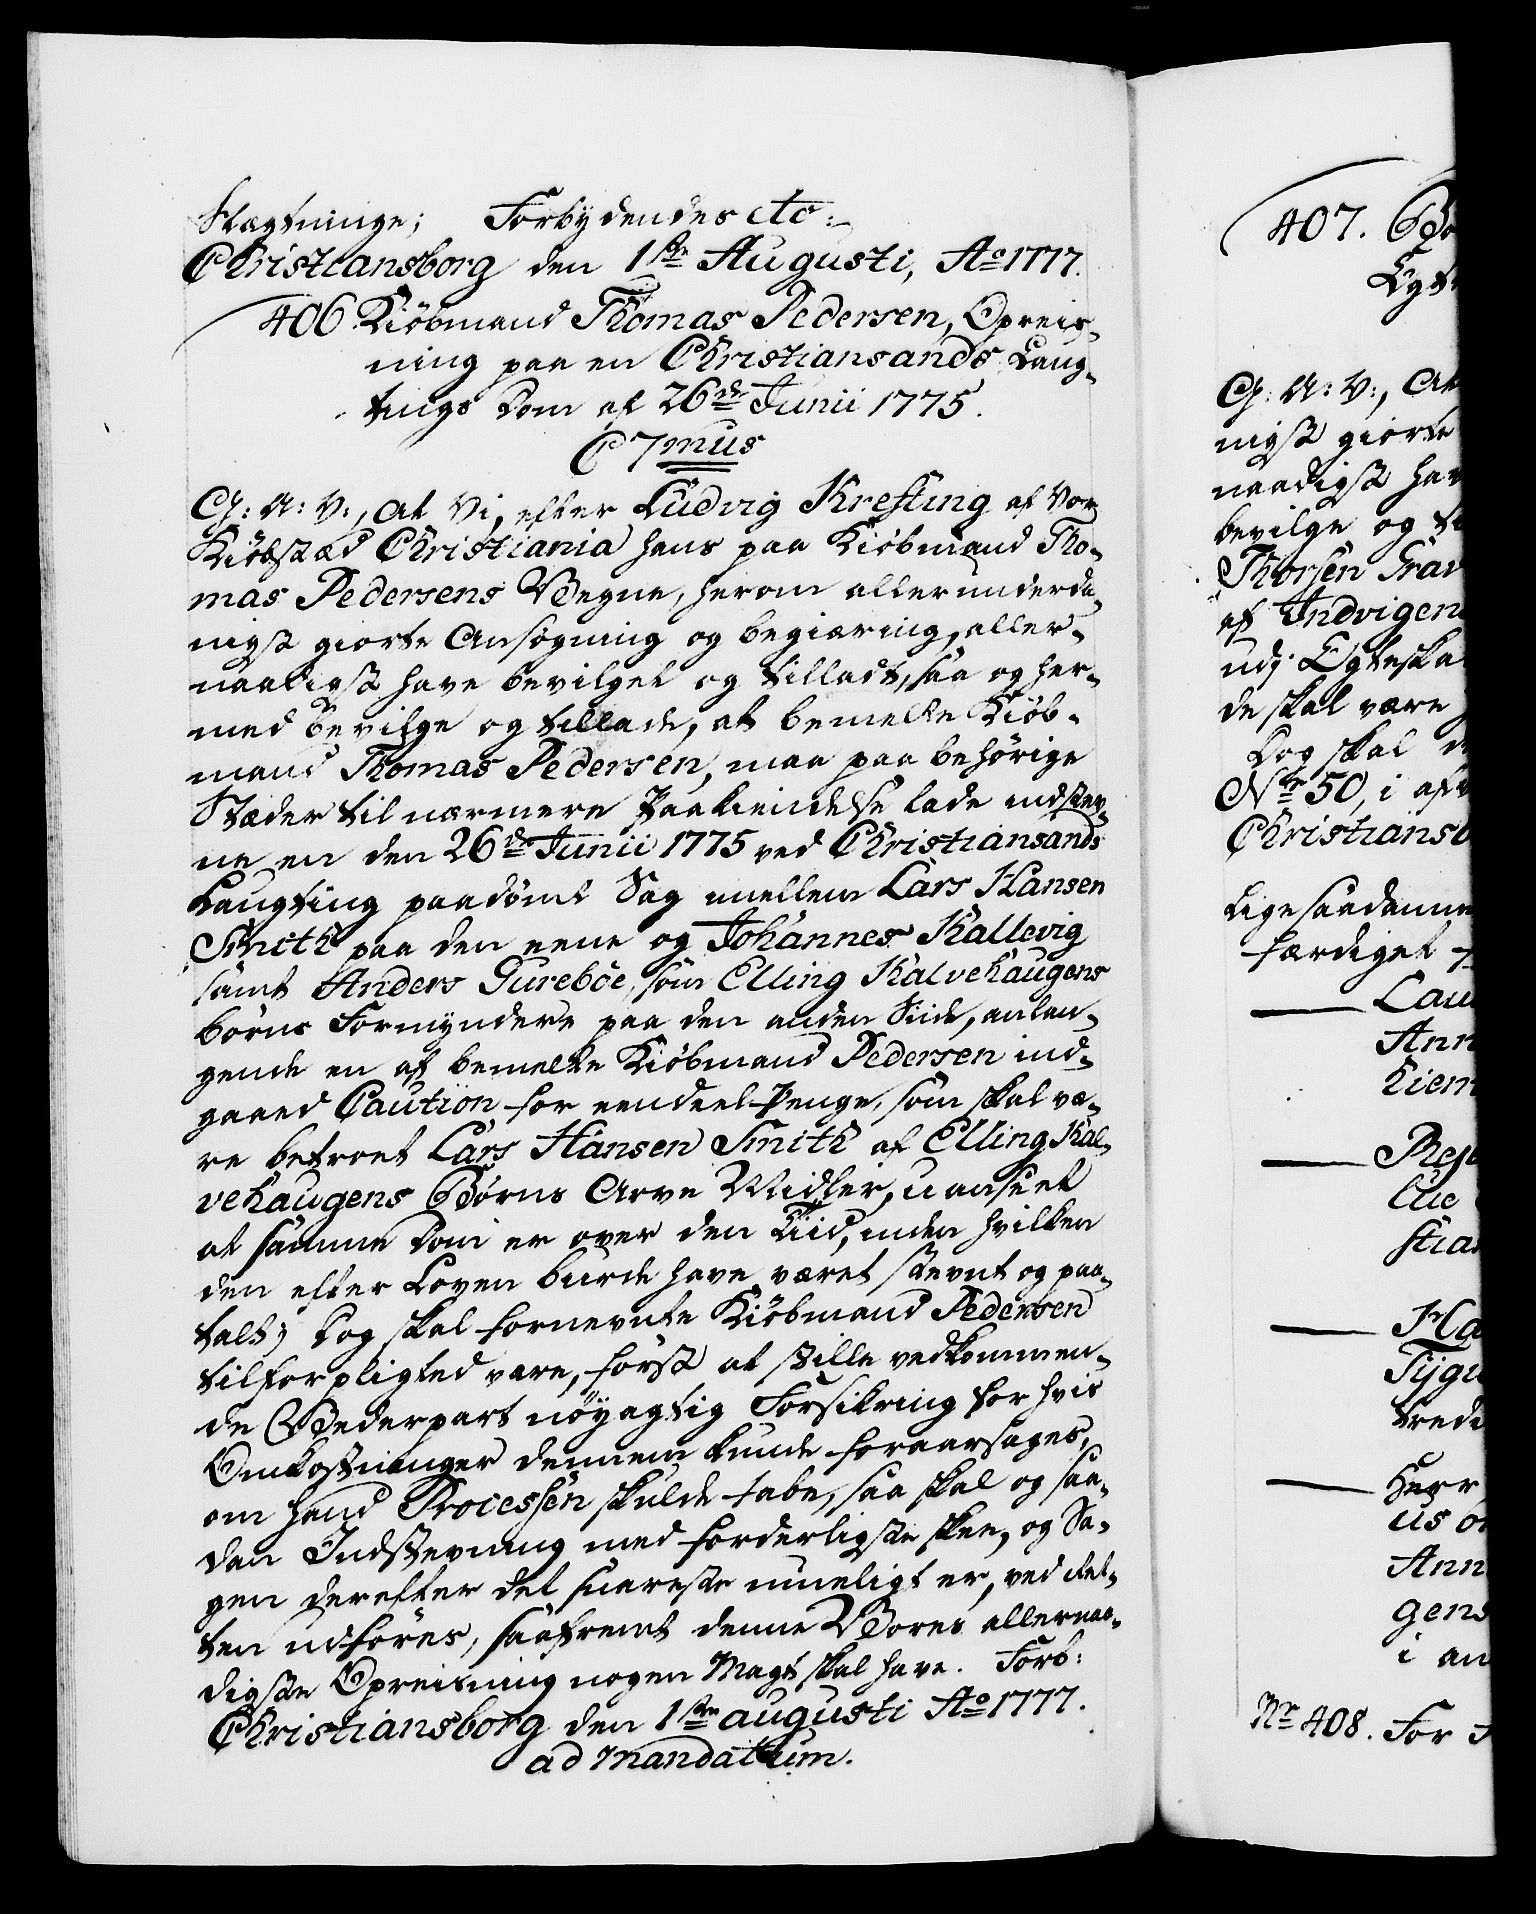 Slægtninge; Forbydendes etc:
Christiansborg den 1ste Augusti, Ao 1777.
406. Kiöbmand Thomas Pedersen, Opreis-
ning paa en Christiansands Laug-
tings Dom af 26de Junii 1775.
C 7mus
G: A: V:, At Vi, efter Ludvig Kresting af Vor
Kiöbstæd Christiania hans paa Kiöbmand Tho-
mas Pedersens Vegne, herom allerunderda-
nigst giorte Ansøgning og begiæring, aller-
naadigst have bevilget og tilladt, saa og her-
med bevilge og tillade, at bemelte Kiöb-
mand Thomas Pedersen, maa paa behörige
Stæder til nærmere Paakiendelse lade indstev-
ne en den 26de Junii 1775 ved Christiansands
Laugting paadömt Sag imellem Lars Hansen
Smith paa den eene og Johannes Kallevig
samt Anders Gureböe, som Elling Kalvehaugens
börns Formyndere paa den anden Side, anlan-
gende en af bemelte Kiöbmand Pedersen ind-
gaaed Caution for eendeel Penge, som skal væ-
re betroet Lars Hansen Smith af Elling Kal-
vehaugens Børns Arve Midler, uanseet
at samme Dom er over den Tiid, inden hvilken
den efter Loven burde have været stevnt og paa-
talt; Dog skal fornevnte Kiöbmand Pedersen
tilforpligted være, først at stille vedkommen-
de Vederpart nöyagtig Forsikring for hvis
Omkostninger dennem kunde foraarsages,
om hand Processen skulde tabe, saa skal og saa-
dan Indstevning med forderligste skee, og Sa-
gen derefter det snareste mueligt er, ved Ret-
ten udföres, saafremt denne Vores allernaa-
digste Opreisning nogen Magt skal have. Forb:
Christiansborg den 1ste augusti Ao 1777.
ad Mandatum.
407.
G: A: V:, At
nigst giorte
naadigst hav
bevilge og ti
Thorsen Grav
af Indvigen
udj Egteska
de skal være
Dog skal de
No 50, i
Christiansb
Ligesaadanne
færdiget
Lau
Ann
Kiem
Rese
lie
stian
Ha
Tygu
tredi
Herr
us
Ann
gens
i an
No 408. For